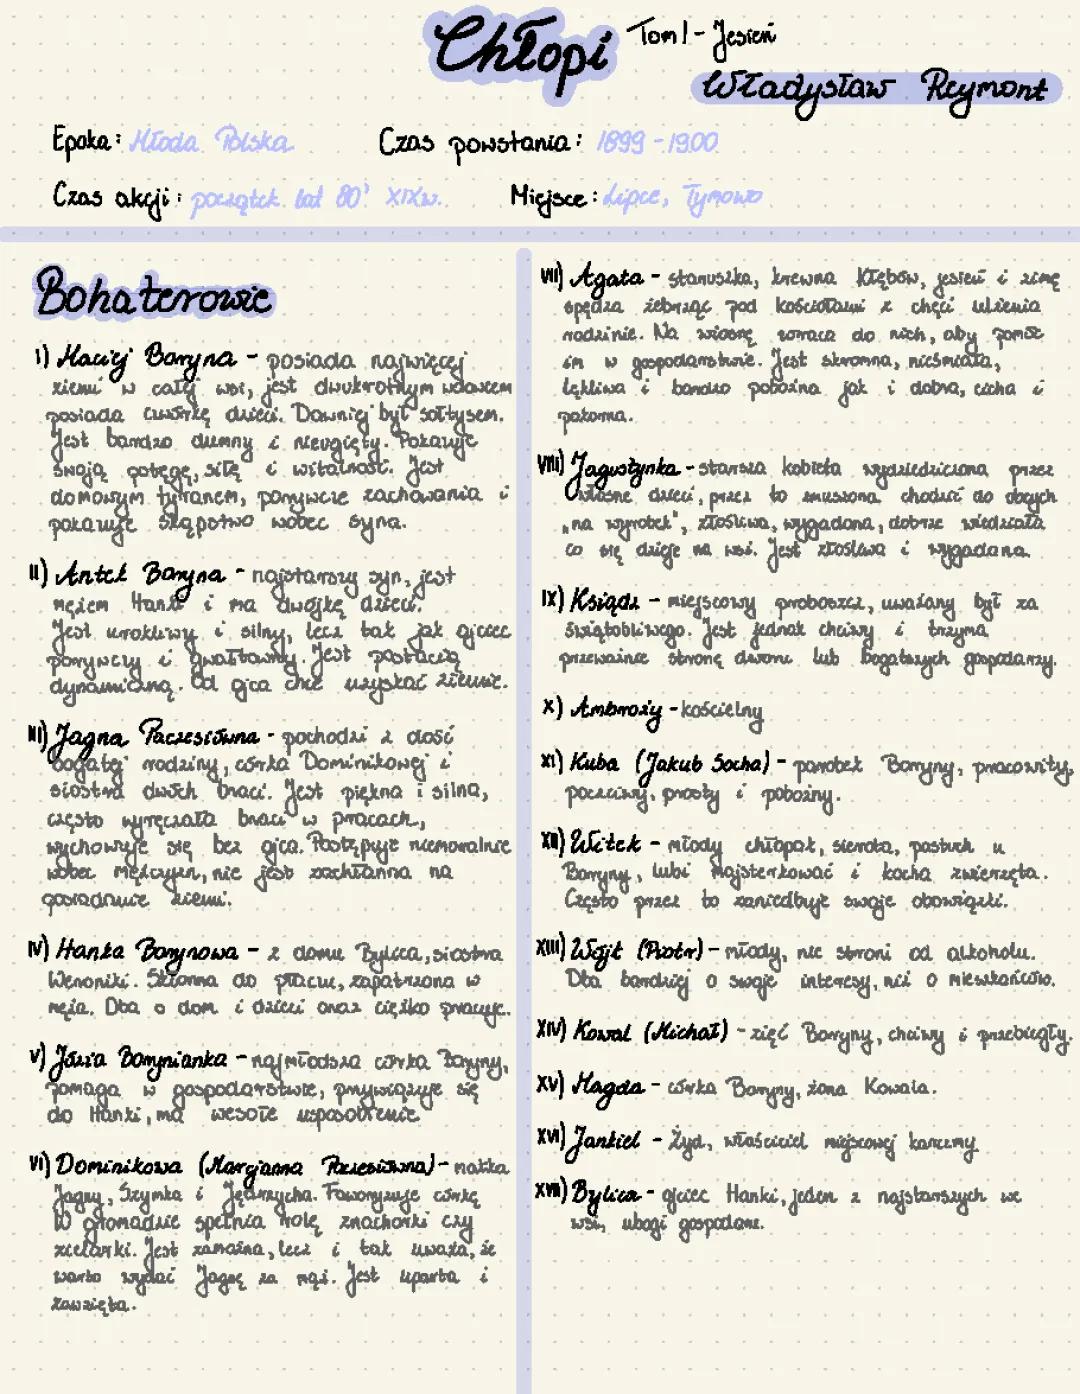 Chłopi Tom I - Jesień
Władysław Reymont
Epoka: Młoda Polska
Czas powstania: 1899-1900
Czas akcji: początek lat 80' XIXw.
Miejsce: Lipce, Tymowo
Bohaterowie
I) Maciej Boryna - posiada najwięcej
ziemi w całej wsi, jest dwukrotnym wdowcem
posiada czwórkę dzieci. Dawniej był sołtysem.
Jest bardzo dumny i nieugięty. Pokazuje
swoją potęgę, siłę i witalność. Jest
domowym tyranem, porywcze zachowania i
pokazuje skąpstwo wobec syna.
II) Antek Boryna - najstarszy syn, jest
mężem Hanki i ma dwójkę dzieci.
Jest urokliwy i silny, lecz tak jak ojciec
porywczy i gwałtowny. Jest postacią
dynamiczną. Od ojca chce uzyskać ziemie.
III) Jagna Paczesiówna - pochodzi z dość
bogatej rodziny, córka Dominikowej i
siostra dwóch braci. Jest piękna i silna,
często wyręczała braci w pracach,
wychowuje się bez ojca. Postępuje niemoralnie
wobec mężczyzn, nie jest zachłanna na
posiadanie ziemi.
IV) Hanka Borynowa - z domu Bylica, siostra
Weroniki. Skłonna do płaczu, zapatrzona w
męża. Dba o dom i dzieci oraz ciężko pracuje.
V) Józia Borynianka - najmłodsza córka Boryny,
pomaga w gospodarstwie, przywiązuje się
do Hanki, ma wesołe usposobienie
VI) Dominikowa (Marcjanna Paczesiówna) - matka
Jagny, Szymka i Jędrzycha. Faworyzuje córkę
W gromadzie spełnia rolę znachorki czy
zielarki. Jest zamożna, lecz i tak uważa, że
warto wydać Jagnę za mąż. Jest uparta i
zawzięta.
VII) Agata - staruszka, krewna Kłębów, jesień i zimę
spędza żebrząc pod kościołami z chęci ulżenia
rodzinie. Na wiosnę wraca do nich, aby pomóc
im w gospodarstwie. Jest skromna, nieśmiała,
lękliwa i bardzo pobożna jak i dobra, cicha i
pokorna.
VIII) Jagustynka - starsza kobieta wydziedziczona przez
własne dzieci, przez to zmuszona chodzić do obcych
„na wyrobek", złośliwa, wygadana, dobrze wiedziała
co się dzieje na wsi. Jest złośliwa i wygadana.
IX) Ksiądz - miejscowy proboszcz, uważany był za
świątobliwego. Jest jednak chciwy i trzyma
przeważnie stronę dworu lub bogatszych gospodarzy.
X) Ambroży - kościelny
XI) Kuba (Jakub Socha) - parobek Boryny, pracowity,
poczciwy, prosty i pobożny.
XII) Witek - młody chłopak, sierota, pastuch u
Boryny, lubi majsterkować i kocha zwierzęta.
Często przez to zaniedbuje swoje obowiązki.
XIII) Wójt (Piotr) - młody, nie stroni od alkoholu.
Dba bardziej o swoje interesy, niż o mieszkańców.
XIV) Kowal (Michał) - zięć Boryny, chciwy i przebiegły.
XV) Magda - córka Boryny, żona Kowala.
XVI) Jankiel - Żyd, właściciel miejscowej karczmy
XVII) Bylica - ojciec Hanki, jeden z najstarszych we
wsi, ubogi gospodarz.